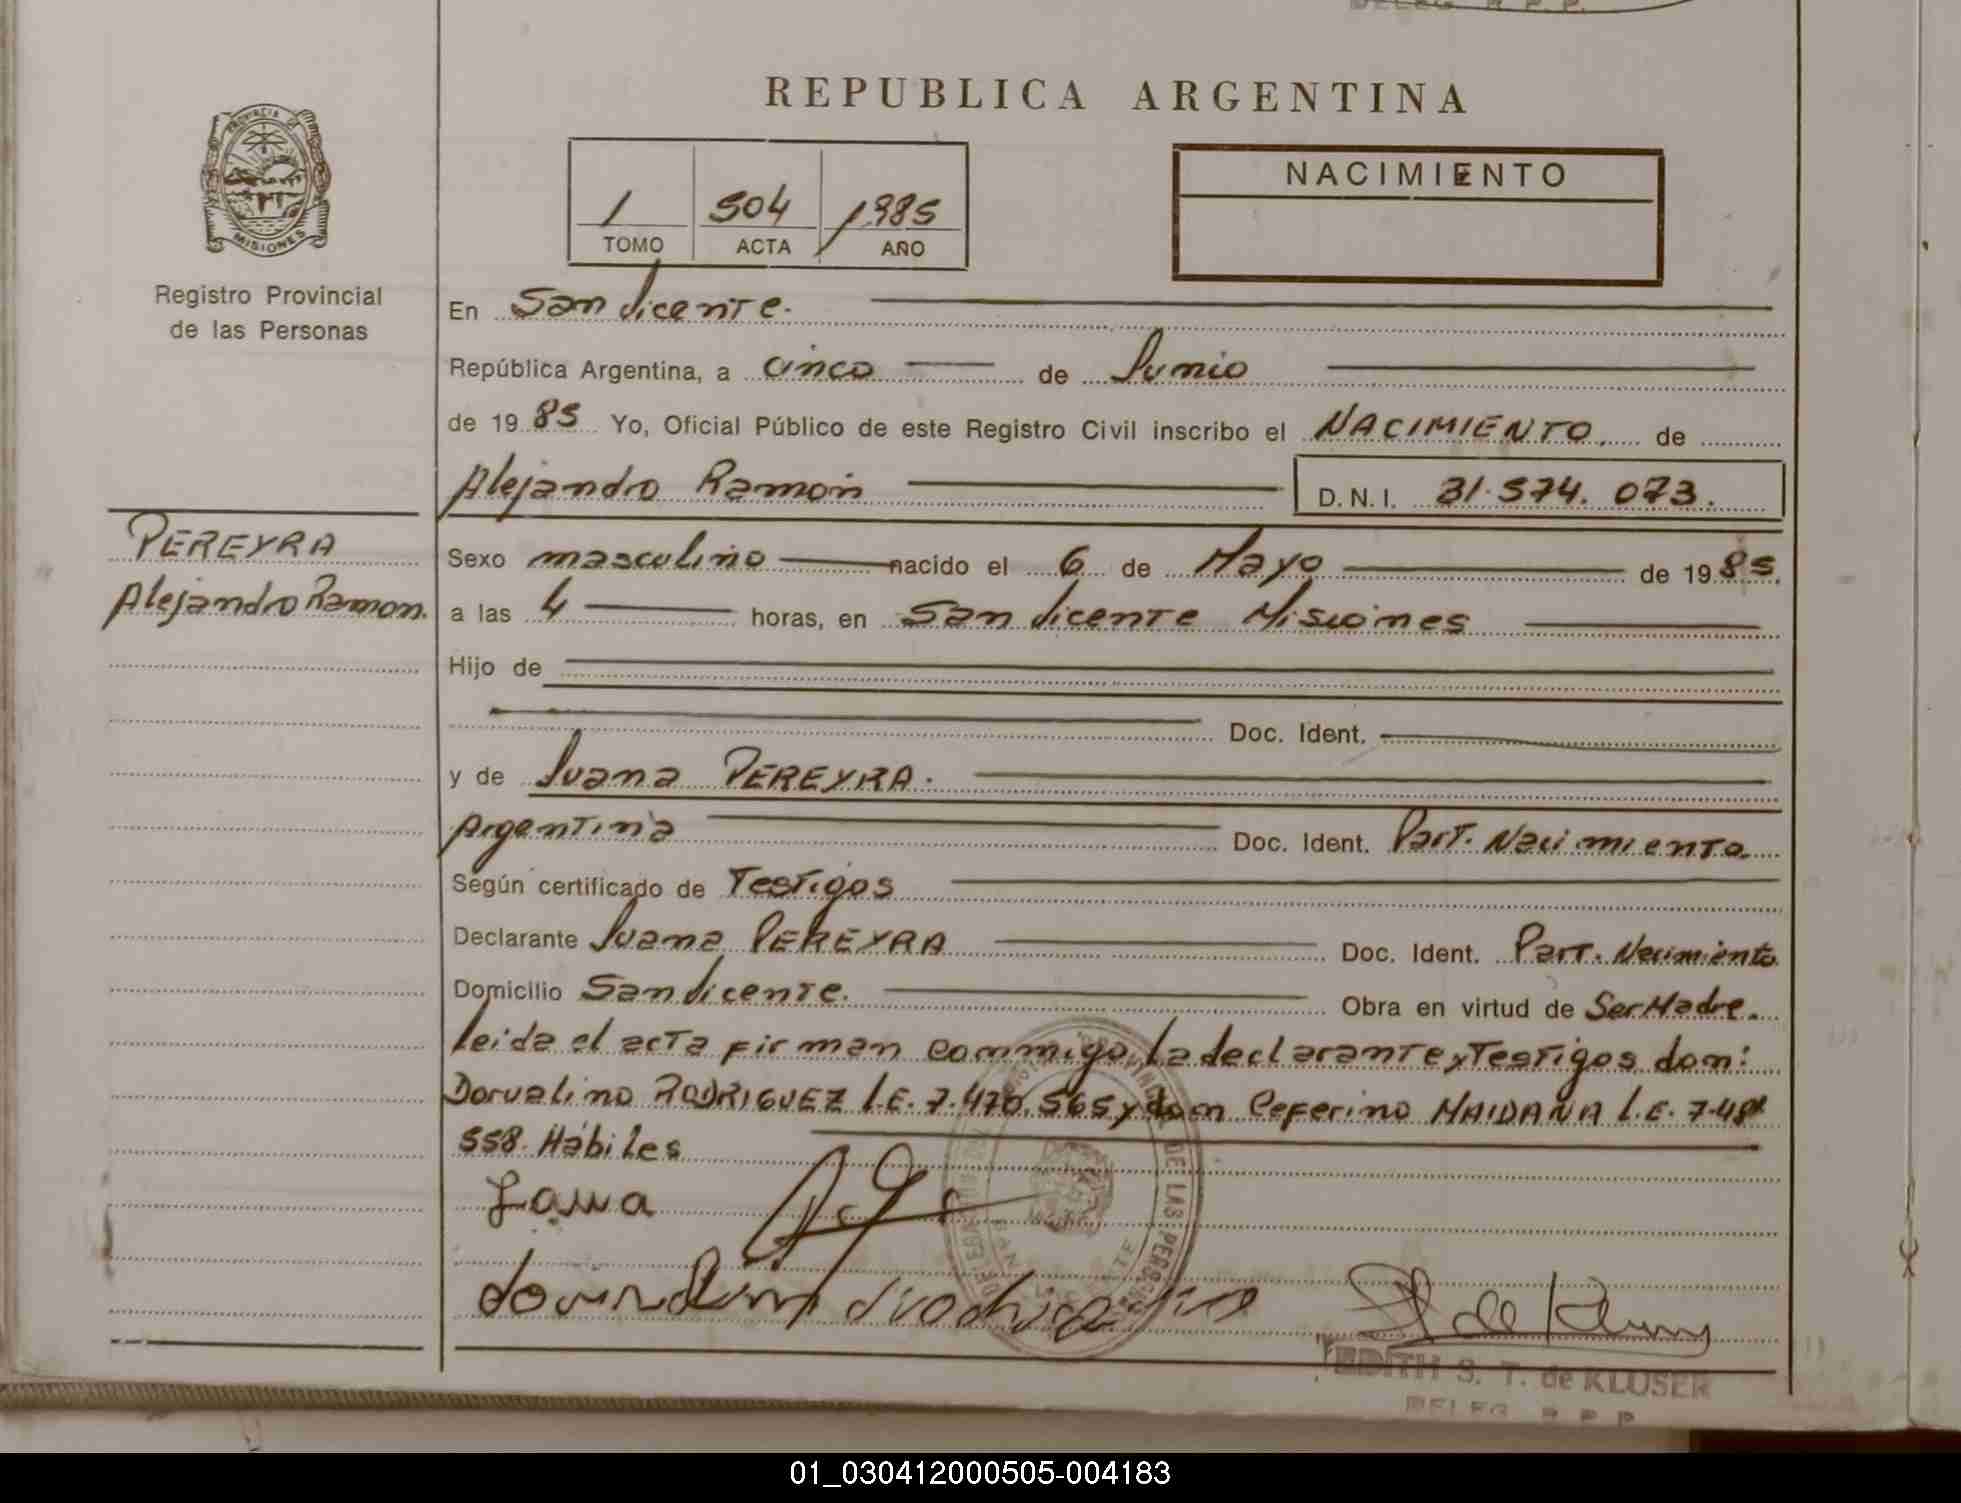 DELEG. R. P. P.
REPUBLICA ARGENTINA
PROVINCIA DE
MISIONES
Registro Provincial
de las Personas
1 504 1985
TOMO ACTA AÑO
NACIMIENTO
En San Vicente.
República Argentina, a cinco de Junio
de 1985 Yo, Oficial Público de este Registro Civil inscribo el NACIMIENTO. de
Alejandro Ramón
D.N.I. 31.574.073.
PEREYRA
Alejandro Ramon.
Sexo masculino nacido el 6 de Mayo de 1985.
a las 4 horas, en San Vicente Misiones
Hijo de
Doc. Ident.
y de Juana PEREYRA.
Argentina Doc. Ident. Part. Nacimiento.
Según certificado de Testigos
Declarante Juana PEREYRA Doc. Ident. Part. Nacimiento
Domicilio San Vicente. Obra en virtud de Ser Madre.
leida el acta firman conmigo, la declarante y Testigos don:
Dorvalino RODRIGUEZ L.E. 7.470.565 y don Ceferino MAIDANA L.E. 7.481
558. Hábiles
DE LAS PERSONAS
EDITH S. T. de KLUSER
DELEG. R. P. P.
01_030412000505-004183